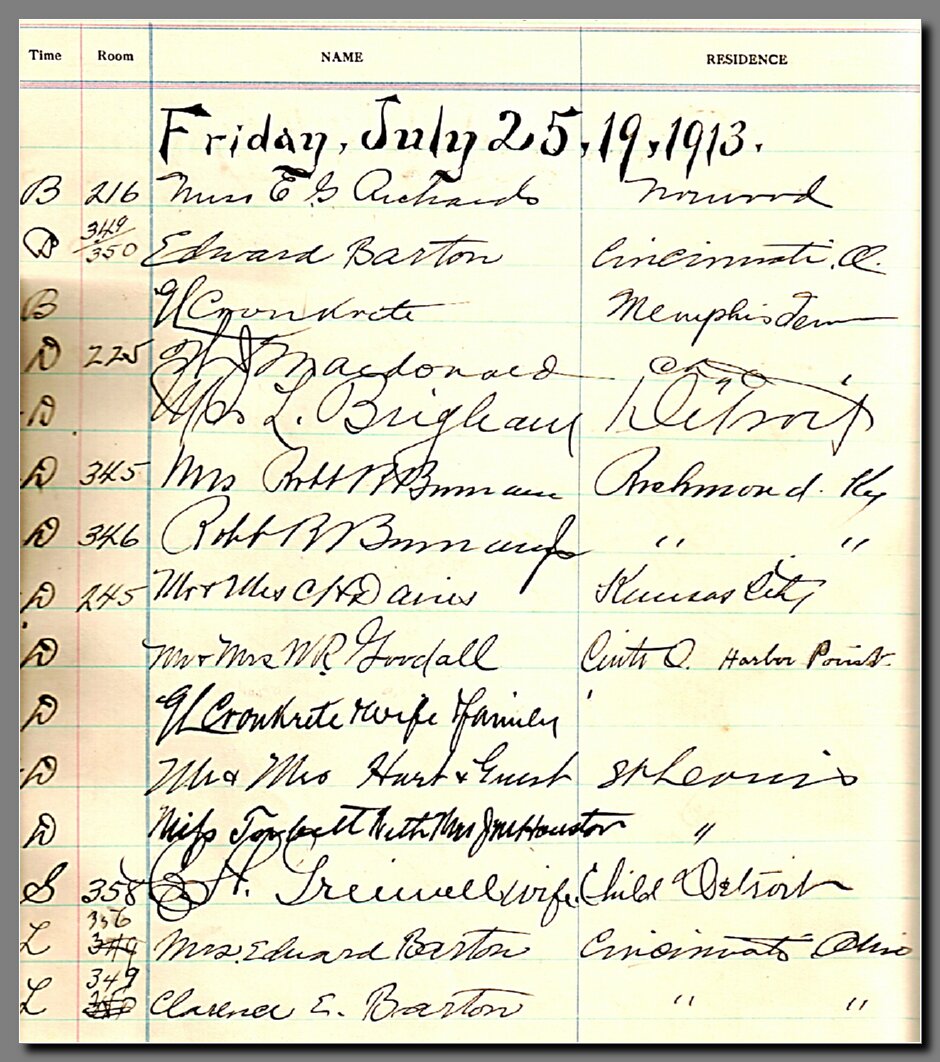 Time Room NAME RESIDENCE
Friday, July 25, 19, 1913.
B 216 Miss E G Richards Norwood
B 349/350 Edward Barton Cincinnati, O.
B Cronkrete Memphis Tenn
D 225 Macdonald
D Mrs L. Brigham Detroit
D 345 Mrs Robt R Burnam Richmond. Ky
D 346 Robt R Burnam Jr " "
D 245 Mr & Mrs C H Davies Kansas City
D Mr & Mrs W R Goodall Cinti O. Harbor Point.
D Cronkrete & wife & family
D Mr & Mrs Hart & Guest St Louis
D Miss with Mrs Houston "
S 358 H. wife, Child Detroit
L 356 349 Mrs. Edward Barton Cincinnati Ohio
L 349 Clarence E. Barton " "